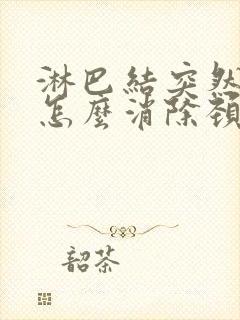 淋巴結突然
怎麼消除頸
韶荼